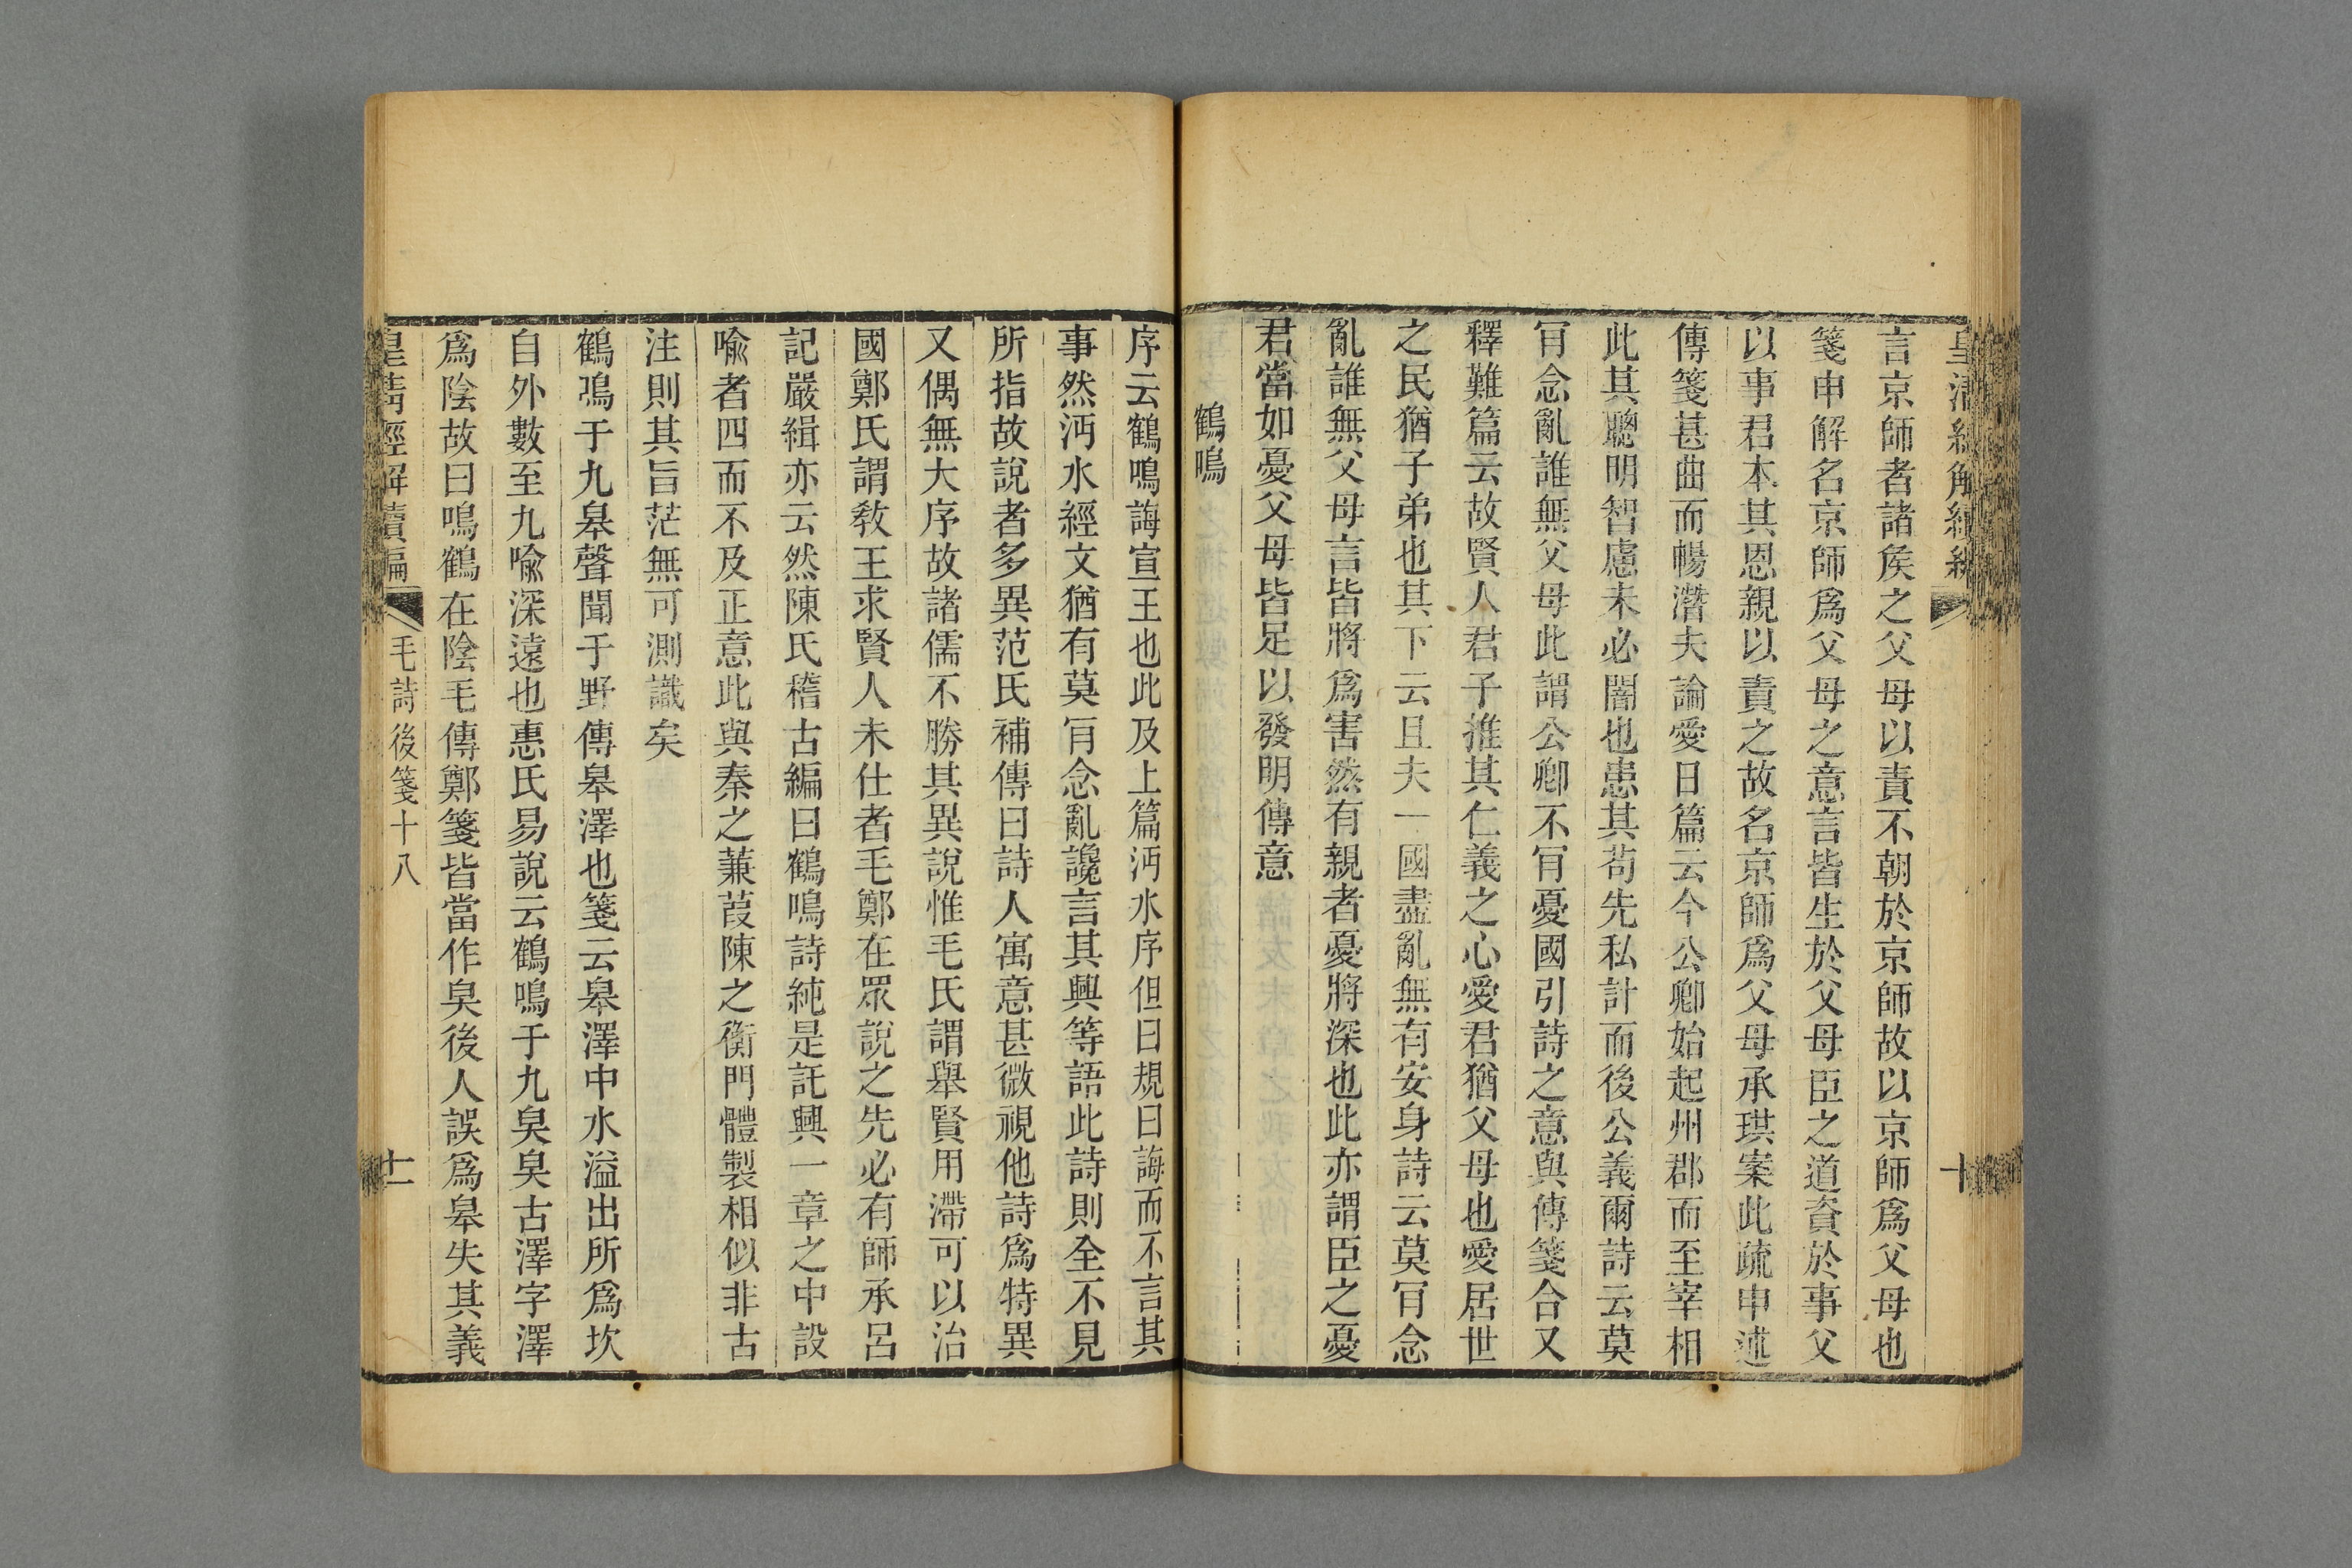 言京師者諸矦之父母以責不朝於京師故以京師爲父母也
箋申解名京師爲父母之意言皆生於父母臣之道資於事父
以事君本其恩親以責之故名京師爲父母承珙案此疏申述
傳箋甚曲而暢潛夫論愛日篇云今公卿始起州郡而至宰相
此其聰明智慮未必闇也患其苟先私計而後公義爾詩云莫
肎念亂誰無父母此謂公卿不肎憂國引詩之意與傳箋合又
釋難篇云故賢人君子推其仁義之心愛君猶父母也愛居世
之民猶子弟也其下云且夫一國盡亂無有安身詩云莫肎念
亂誰無父母言皆將爲害然有親者憂將深也此亦謂臣之憂
君當如憂父母皆足以發明傳意
鶴鳴
序云鶴鳴誨宣王也此及上篇沔水序但曰規曰誨而不言其
事然沔水經文猶有莫肎念亂讒言其興等語此詩則全不見
所指故說者多異范氏補傳曰詩人寓意甚微視他詩爲特異
又偶無大序故諸儒不勝其異說惟毛氏謂舉賢用滯可以治
國鄭氏謂敎王求賢人未仕者毛鄭在眾說之先必有師承呂
記嚴緝亦云然陳氏稽古編曰鶴鳴詩純是託興一章之中設
喩者四而不及正意此與秦之蒹葭陳之衡門體製相似非古
注則其旨茫無可測識矣
鶴鳴于九皋聲聞于野傳皋澤也箋云皋澤中水溢出所爲坎
自外數至九喩深遠也惠氏易說云鶴鳴于九臭臭古澤字澤
爲陰故曰鳴鶴在陰毛傳鄭箋皆當作臭後人誤爲皋失其義
皇清經解續編
毛詩後箋十八
十一